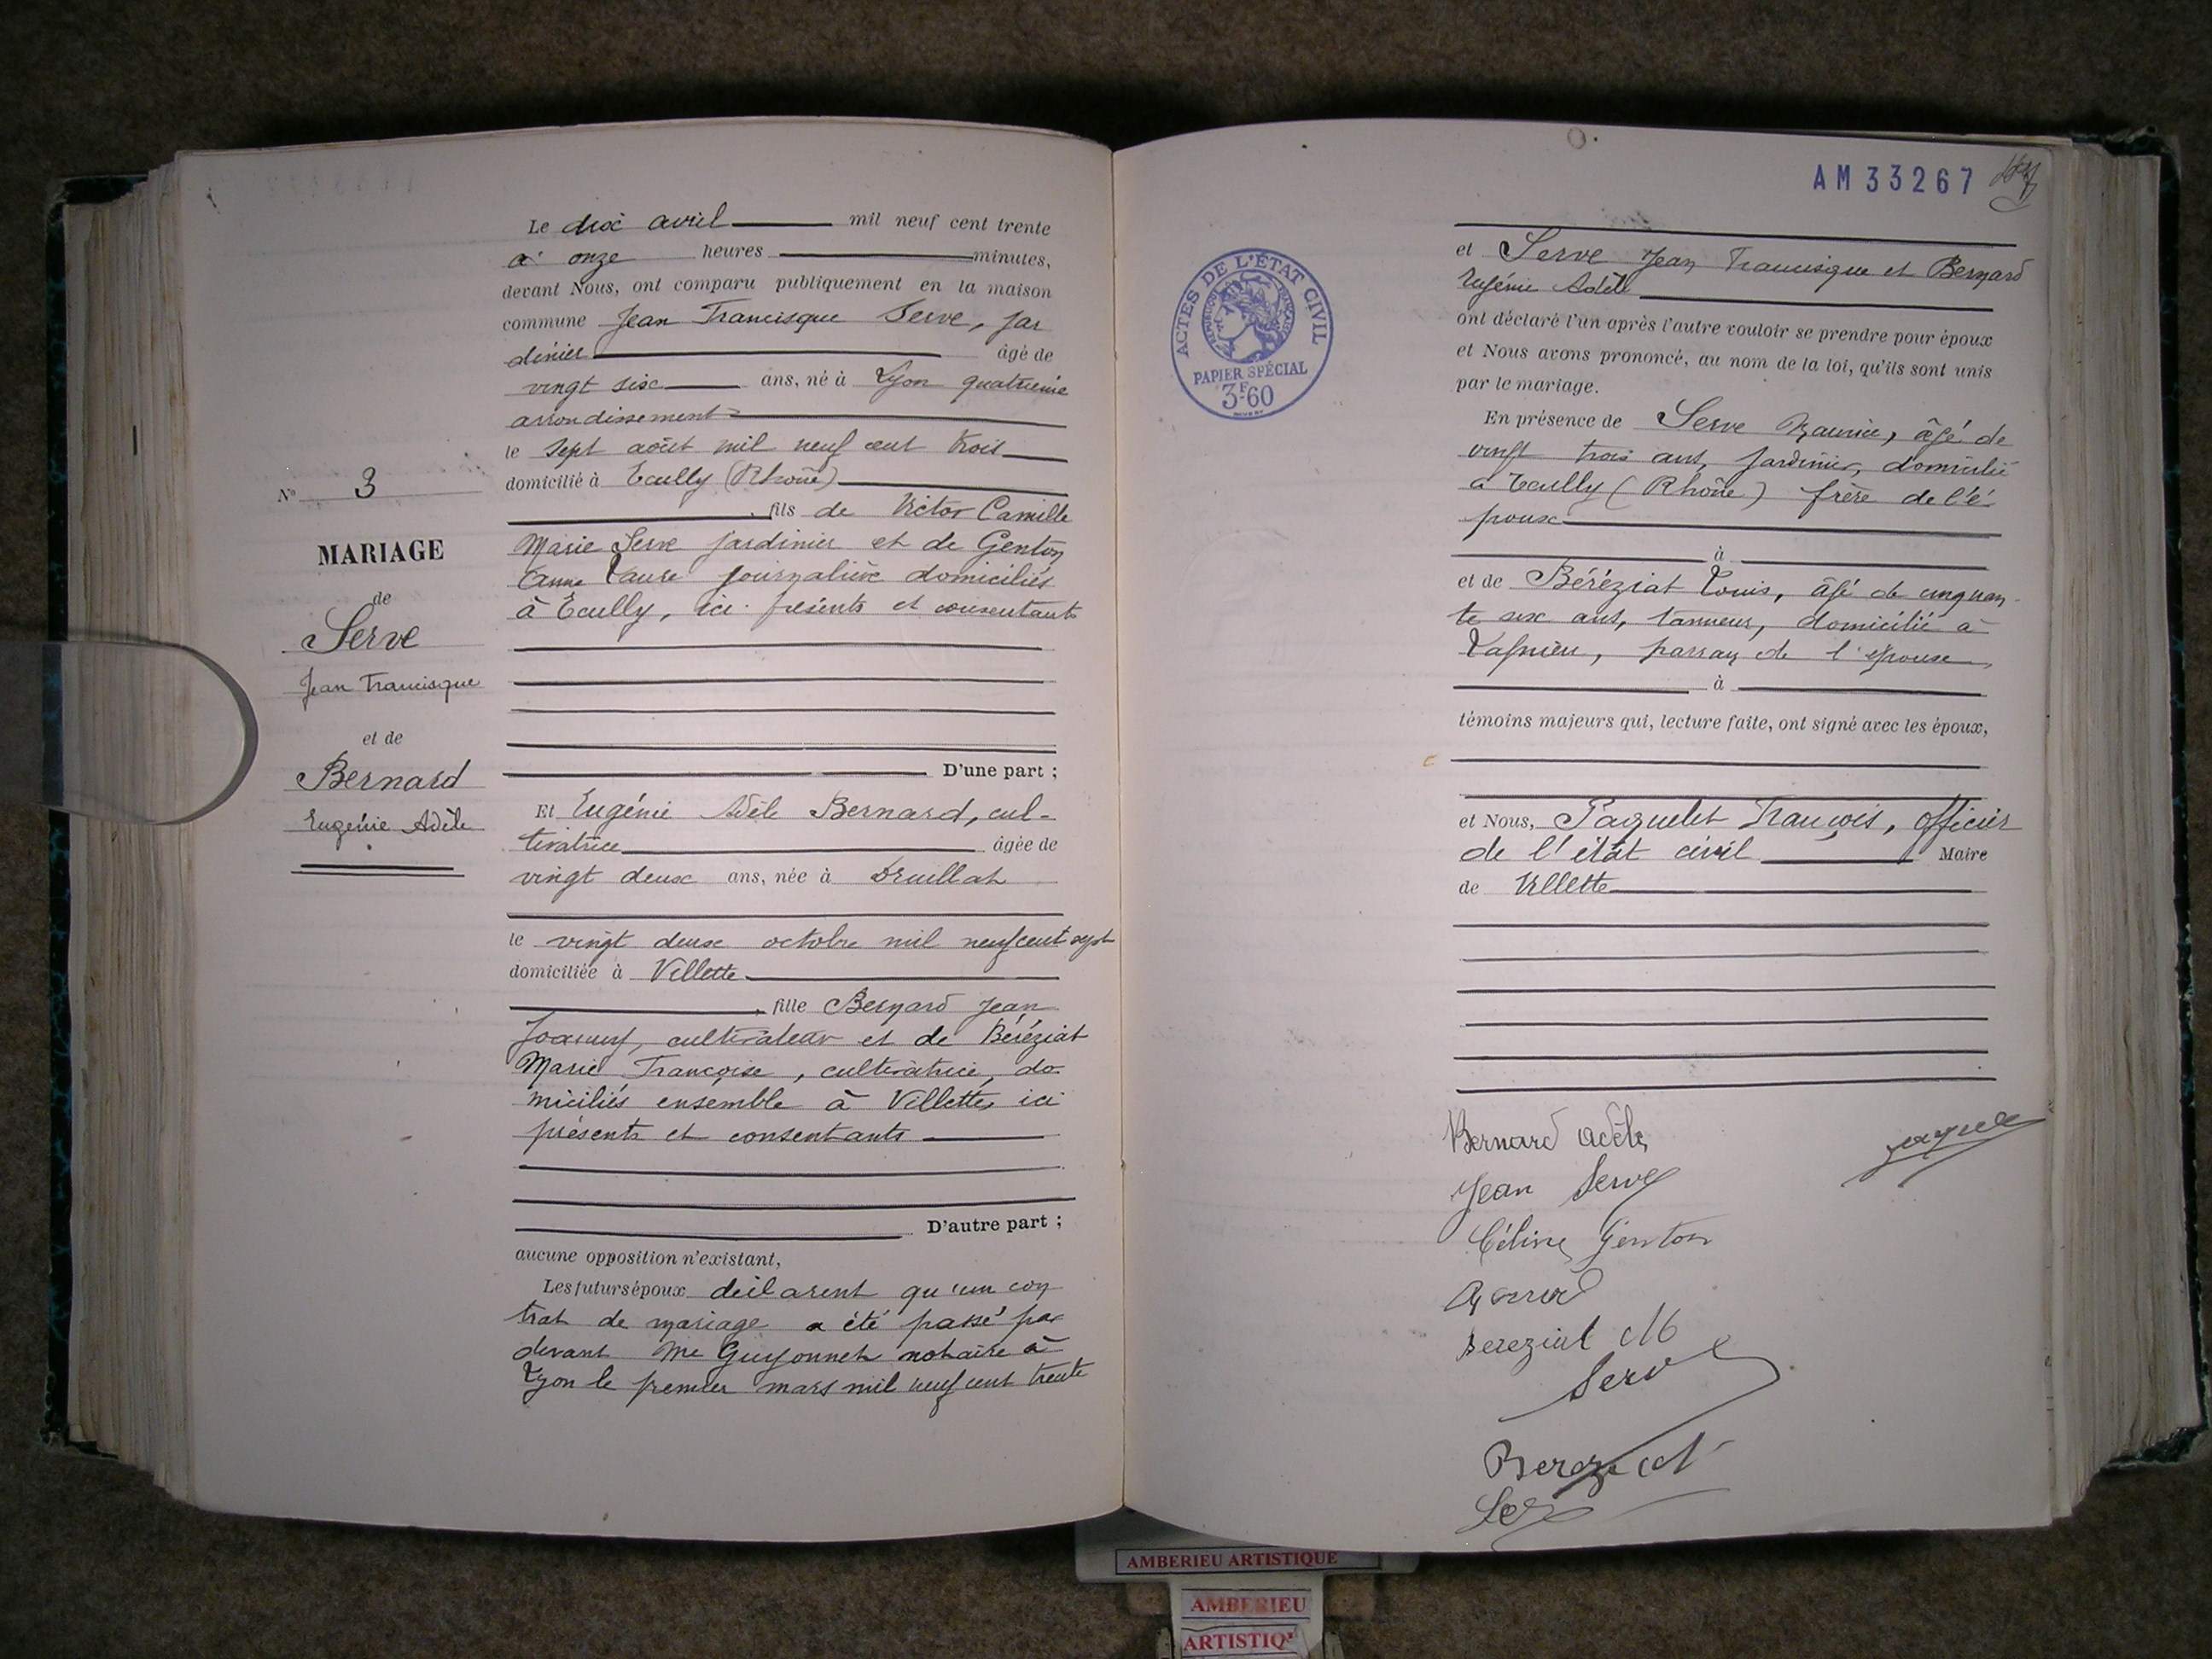 Le dix avril mil neuf cent trente
à onze heures minutes,
devant Nous, ont comparu publiquement en la maison
commune Jean Francisque Serve, jar
dinier âgé de
vingt six ans, né à Lyon quatrième
arrondissement
le sept août mil neuf cent trois
domicilié à Ecully (Rhône)
fils de Victor Camille
Marie Serve jardinier et de Genton
journalière domiciliés
à Ecully, ici présents et consentants
D'une part ;
Et Eugénie Adèle Bernard, cul-
tivatrice âgée de
vingt deux ans, née à Druillat
le vingt deux octobre mil neuf cent sept
domiciliée à Villette
fille Bernard Jean
Joanny, cultivateur et de Béréziat
Marie Françoise, cultivatrice, do
miciliés ensemble à Villette, ici
présents et consentants
D'autre part ;
aucune opposition n'existant,
Les futurs époux déclarent qu'un con
trat de mariage a été passé par
devant Me Guyonnet notaire à
Lyon le premier mars mil neuf cent trente
N° 3
MARIAGE
de
Serve
Jean Francisque
et de
Bernard
Eugénie Adèle
AM 33267
ACTES DE L'ÉTAT CIVIL
RÉPUBLIQUE FRANÇAISE
PAPIER SPÉCIAL
3F60
et Serve Jean Francisque et Bernard
Eugénie Adèle
ont déclaré l'un après l'autre vouloir se prendre pour époux
et Nous avons prononcé, au nom de la loi, qu'ils sont unis
par le mariage.
En présence de Serve Maurice, âgé de
vingt trois ans, jardinier, domicilié
à Ecully (Rhône) frère de l'é
poux
à
et de Béréziat Louis, âgé de cinquan
te six ans, tanneur, domicilié à
Lagnieu, parrain de l'épouse,
à
témoins majeurs qui, lecture faite, ont signé avec les époux,
et Nous, Paquelet François, officier
de l'état civil Maire
de Villette
Bernard Adèle
Jean Serve
Céline Genton
Bereziat M
Serve
Bereziat
AMBERIEU ARTISTIQUE
AMBERIEU
ARTISTIQ